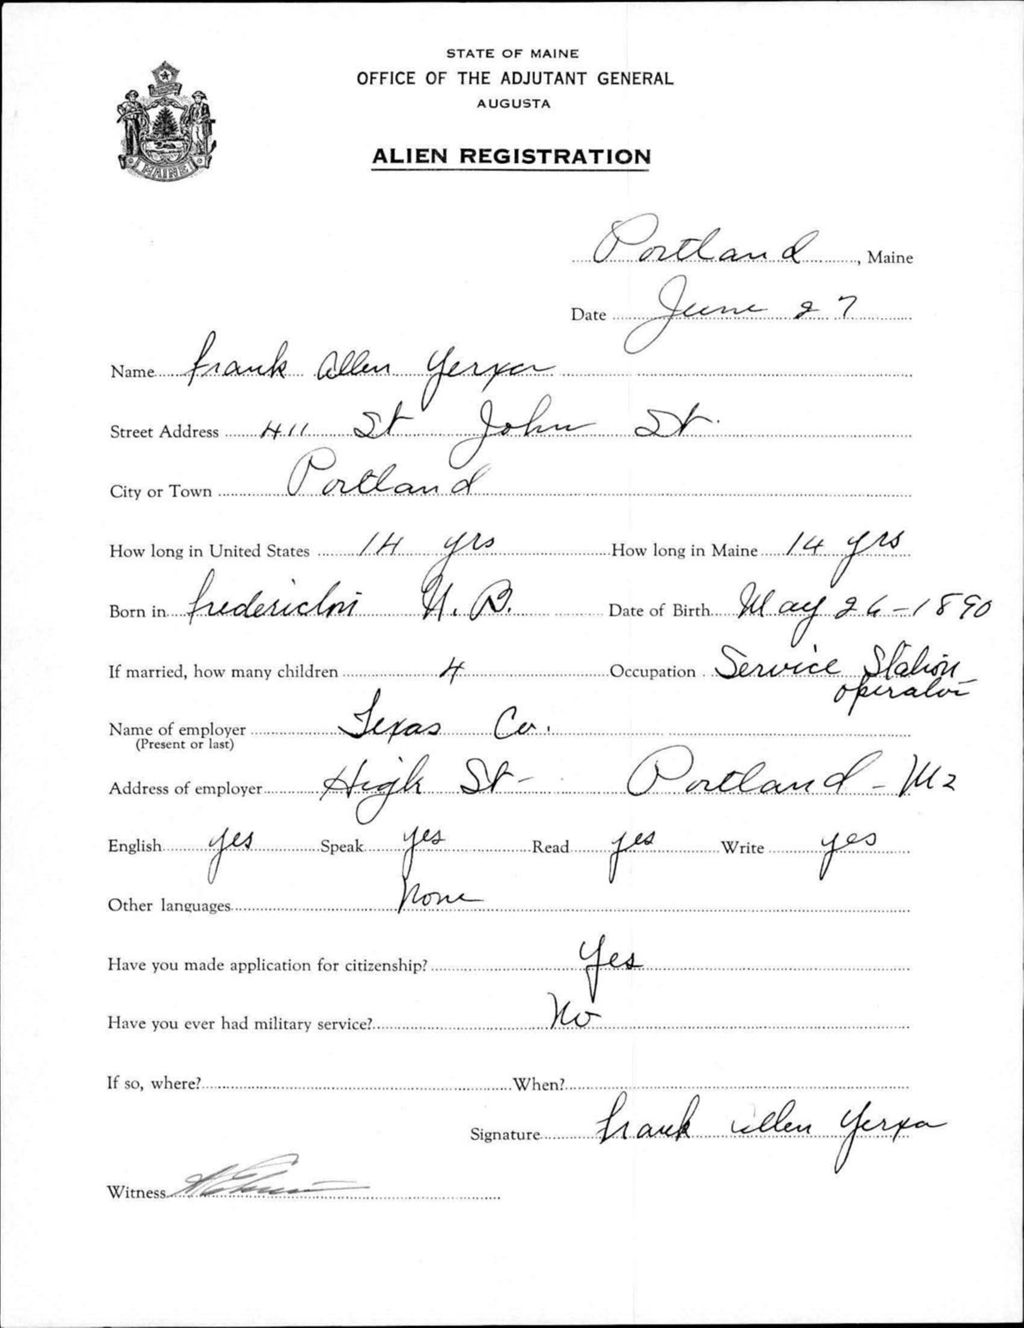 STATE OF MAINE
OFFICE OF THE ADJUTANT GENERAL
AUGUSTA
ALIEN REGISTRATION
MAINE
Portland, Maine
Date June 27
Name Frank Allen Yerxa
Street Address 411 St John St.
City or Town Portland
How long in United States 14 yrs How long in Maine 14 yrs
Born in Fredericton N.B. Date of Birth May 26-1890
If married, how many children 4 Occupation Service Station
operator
Name of employer Texas Co.
(Present or last)
Address of employer High St- Portland - Me
English yes Speak yes Read yes Write yes
Other languages None
Have you made application for citizenship? Yes
Have you ever had military service? No
If so, where? When?
Signature Frank Allen Yerxa
Witness